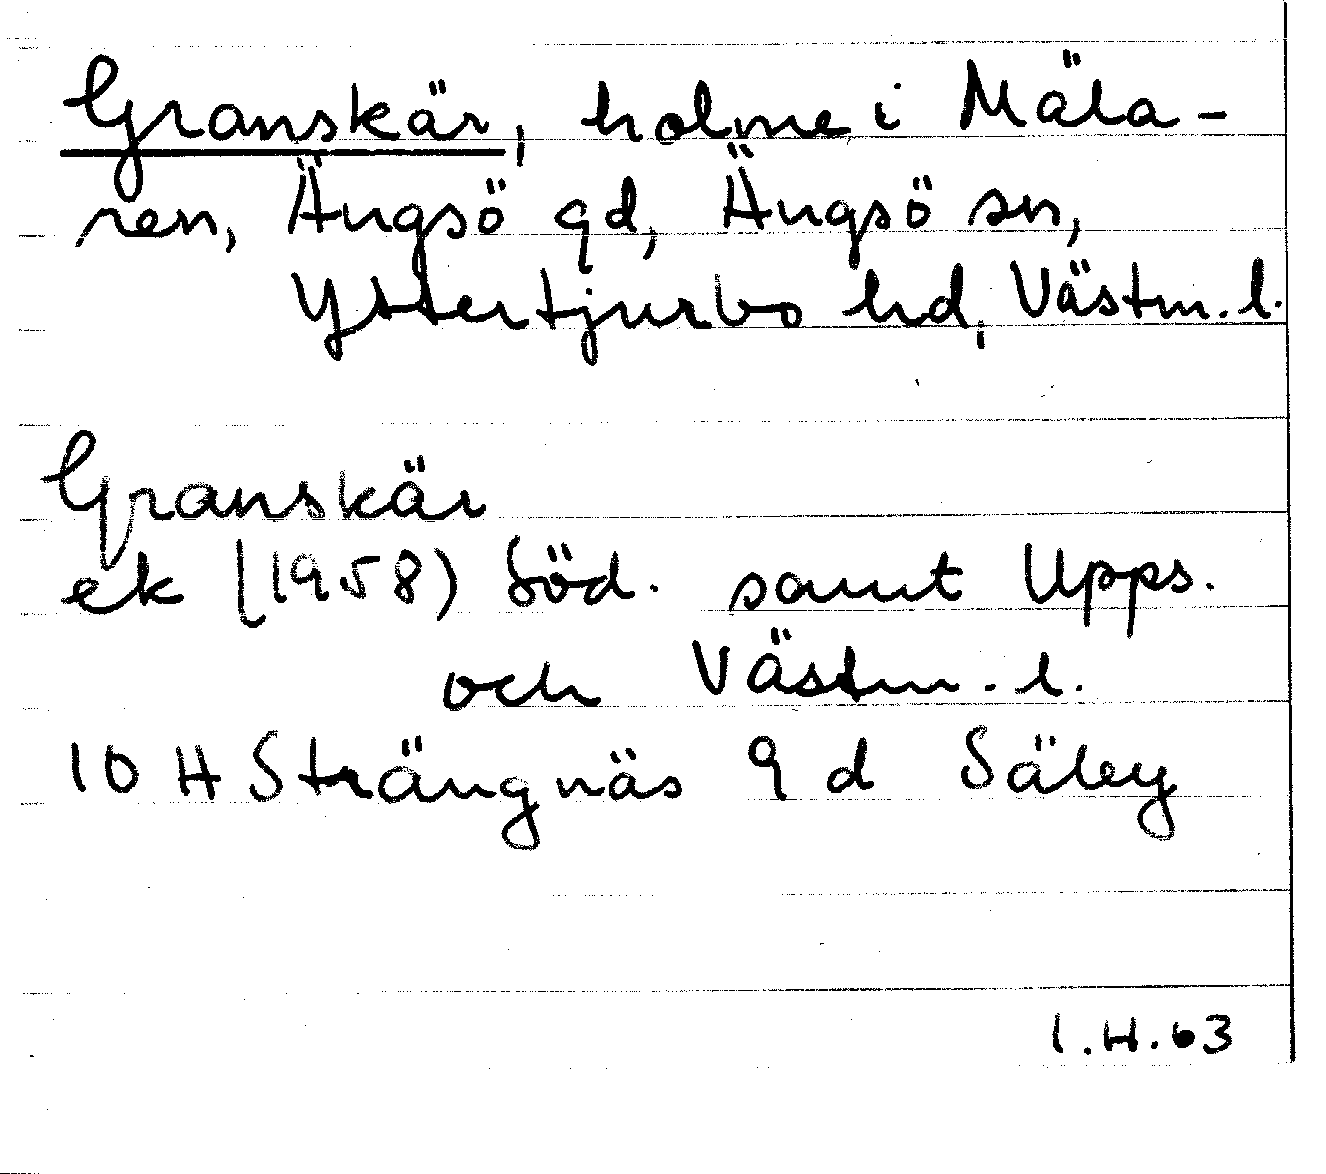 Granskär, holme i Mäla-
ren, Ängsö gd, Ängsö sn,
Yttertjurbo hd, Västm. l.
Granskär
ek (1958) Söd. samt Upps.
och Västm. l.
10 H Strängnäs 9 d Säby
I.H.63